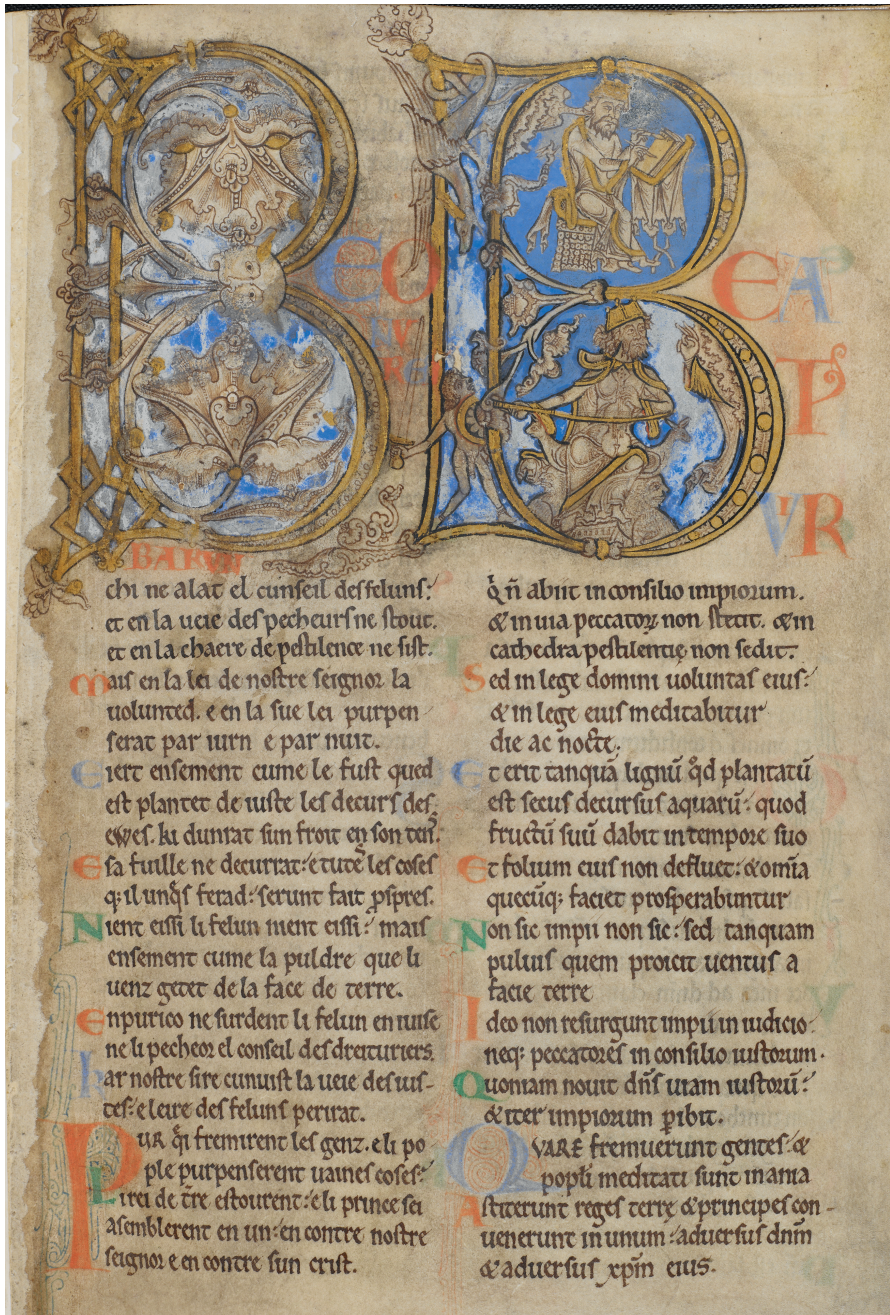 B EO
NV
RE
BARUN
chi ne alat el cunseil des feluns:
et en la ueie des pecheurs ne stout.
et en la chaere de pestilence ne sist.
Mais en la lei de nostre seignor la
uolunted. e en la sue lei purpen
serat par iurn e par nuit.
E iert ensement cume le fust qued
est plantet de iuste les decurs des
ewes. ki dunrat sun froit en son tens.
E sa fuille ne decurrat: e tute les coses
q: il unq̃s ferad: serunt fait ꝓspres.
Nient eissi li felun nient eissi: mais
ensement cume la puldre que li
uenz getet de la face de terre.
Enpurico ne surdent li felun en iuise
ne li pecheor el conseil des dreituriers.
kar nostre sire cunuist la ueie des ius-
tes: e leire des feluns perirat.
PUR q̃i fremirent les genz. e li po
ple purpenserent uaines coses:
Li rei de t̃re estourent: e li prince sei
asemblerent en un: en contre nostre
seignor e en contre sun crist.
B EA
T
VIR
q̃ ñ abiit in consilio impiorum.
& in uia peccatoꝝ non stetit. & in
cathedra pestilentię non sedit:
Sed in lege domini uoluntas eius:
& in lege eius meditabitur
die ac nocte.
Et erit tanquā lignū q̊d plantatū
est secus decursus aquarū: quod
fructū suū dabit in tempore suo
Et folium eius non defluet: & om̄ia
quecūq; faciet prosperabuntur
Non sic impii non sic: sed tanquam
puluis quem proicit uentus a
facie terre
Ideo non resurgunt impii in iudicio:
neq; peccatores in consilio iustorum.
Quoniam nouit dñs uiam iustorū:
& iter impiorum ꝑibit.
QVARE fremuerunt gentes: &
popl̃i meditati sunt inania
Astiterunt reges terrę & principes con-
uenerunt in unum: aduersus dn̄m
& aduersus xp̄m eius.